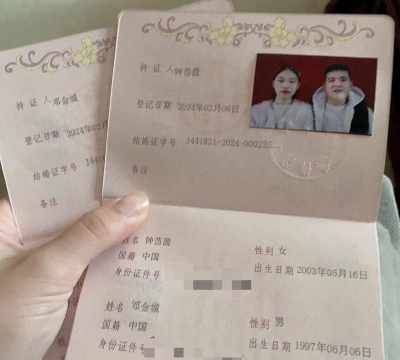 持 证 人 邓金城
登记日期 2024年02月
结婚证字号 J4418
备注
持 证 人 钟茵茵
登记日期 2024年02月06日
结婚证字号 J441821-2024-000235...
备注
姓名 钟茵茵
性别 女
国籍 中国
出生日期 2003年05月16日
身份证件号
姓名 邓金城
性别 男
国籍 中国
出生日期 1997年06月06日
身份证件号